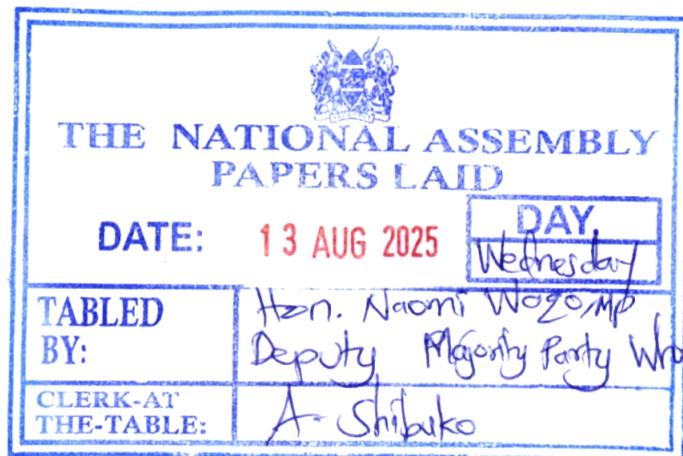 THE NATIONAL ASSEMBLY
PAPERS LAID
DATE: 13 AUG 2025
DAY
Wednesday
TABLED BY:
Hon. Naomi Waqo, MP
Deputy Majority Party Whi
CLERK-AT THE-TABLE:
A. Shibuko